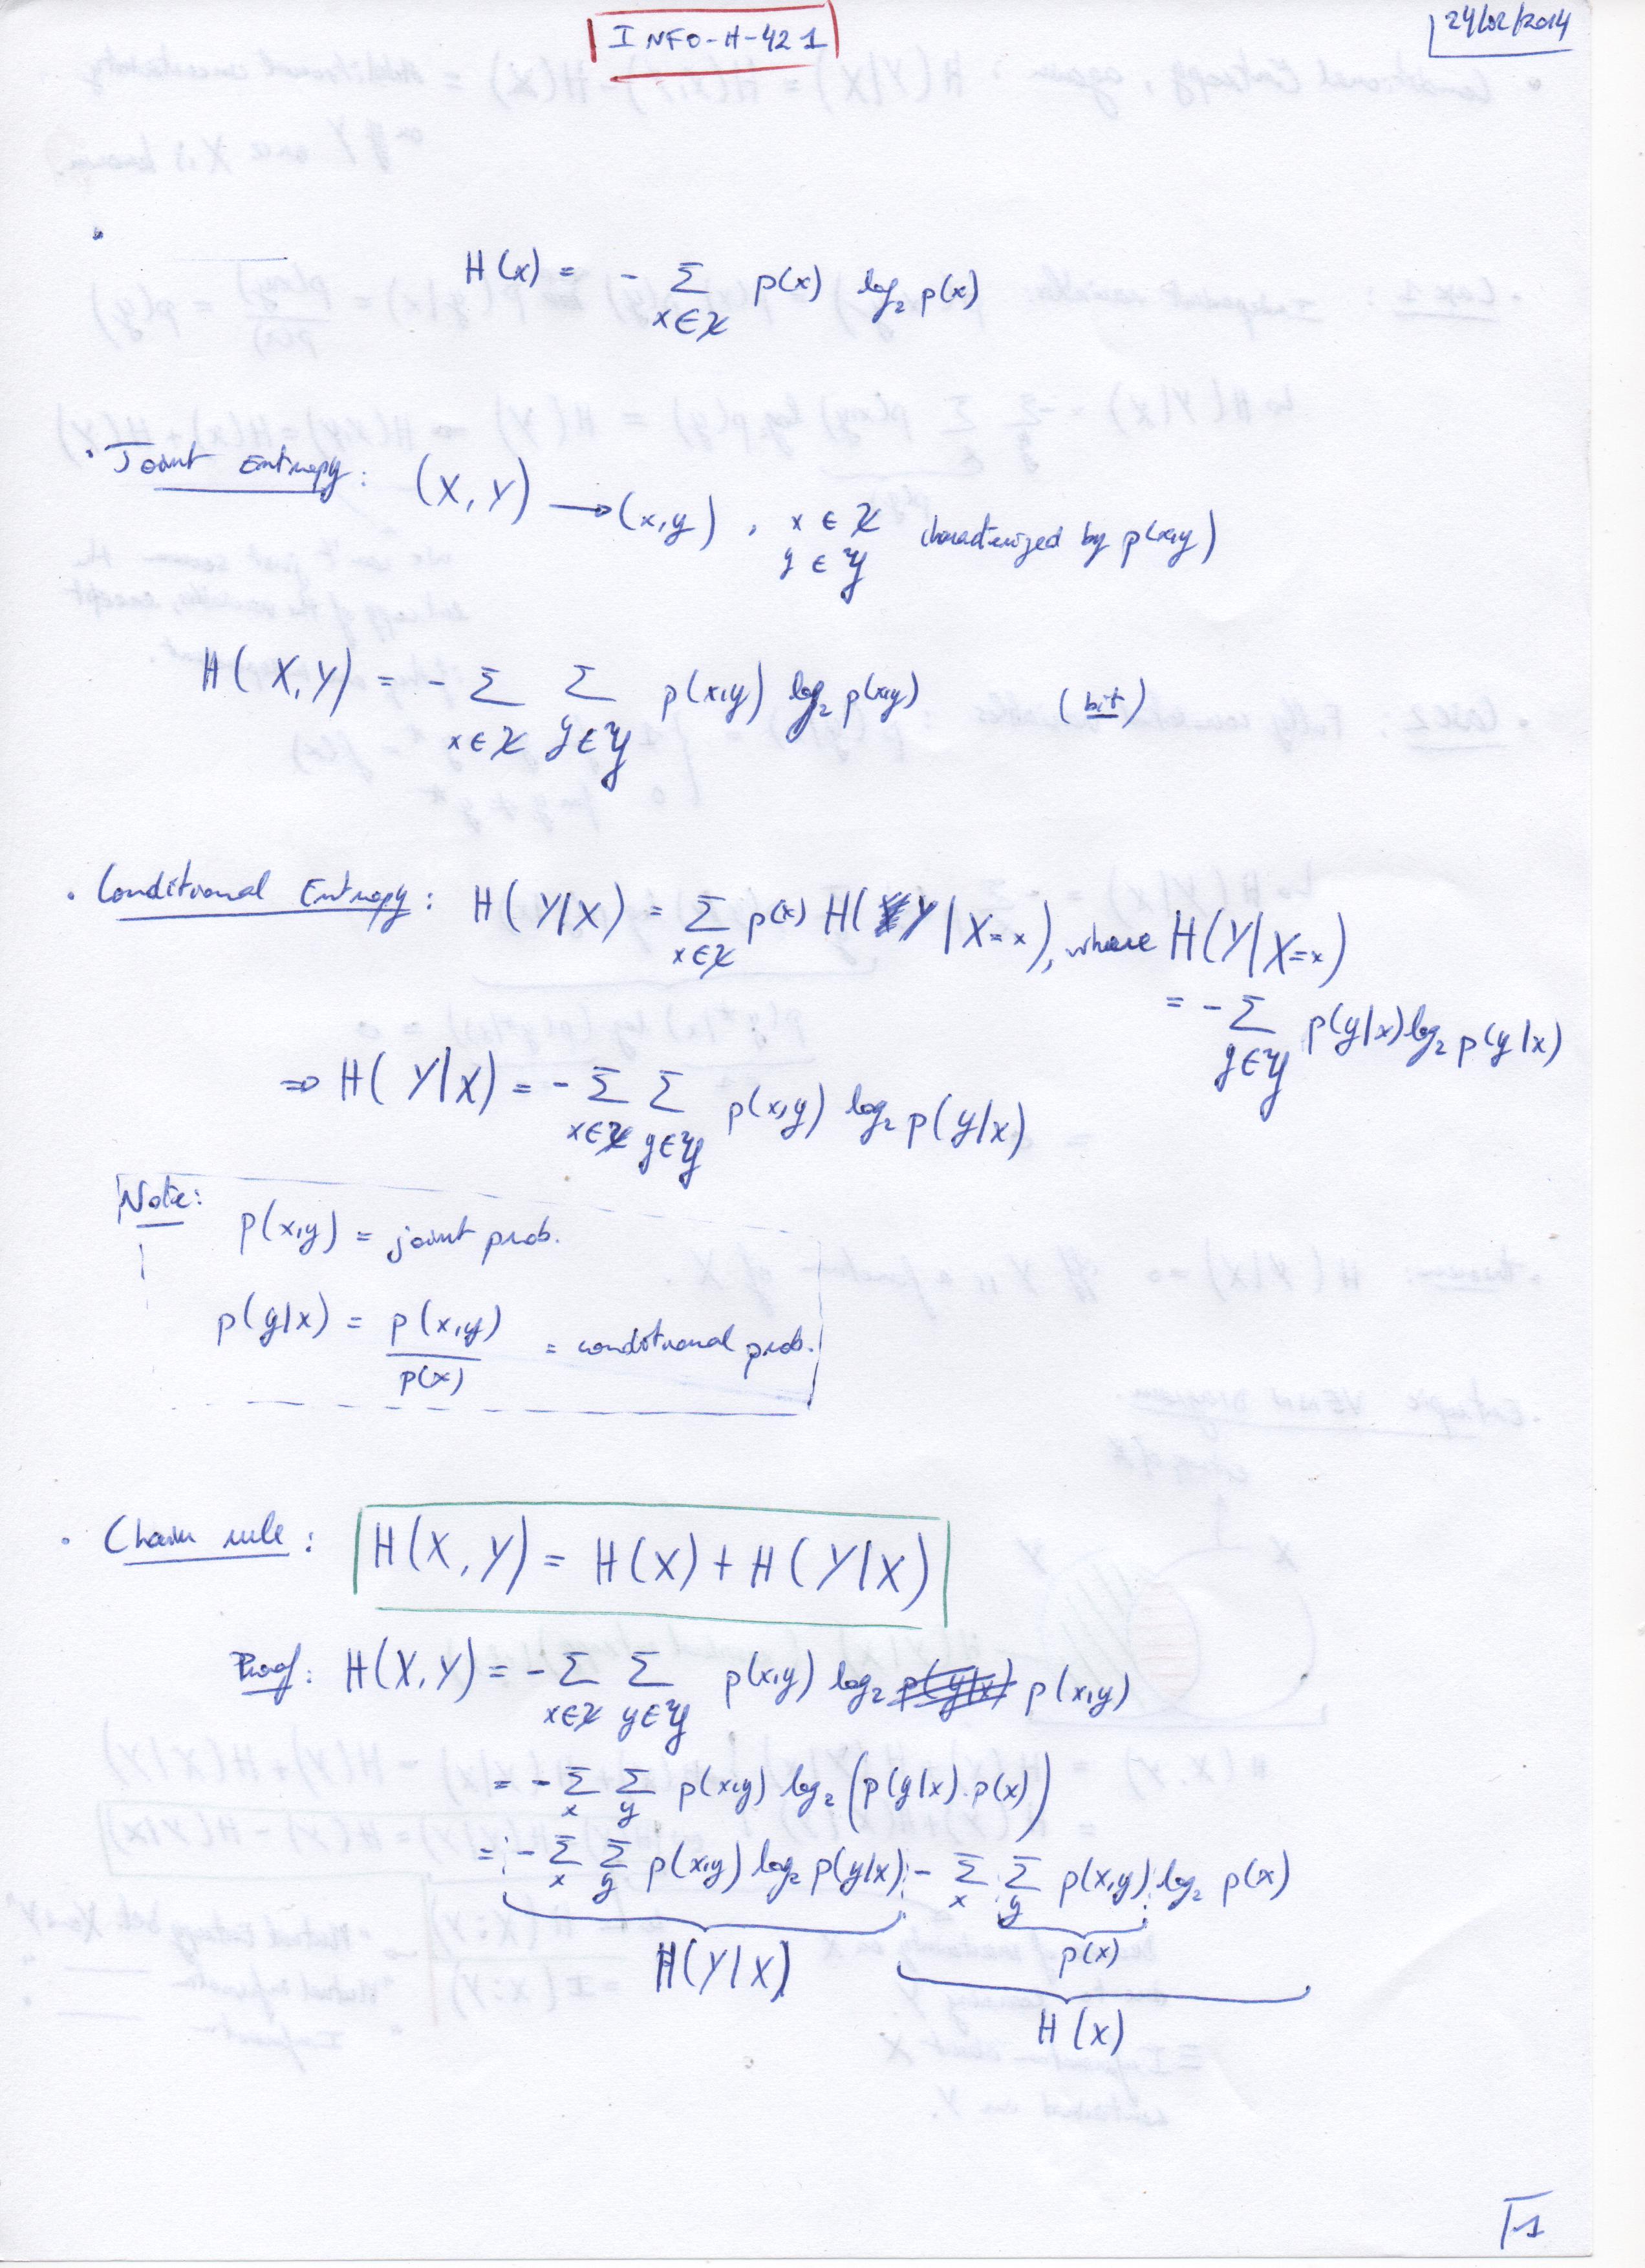 INFO-H-421
24/02/2014
H(x) = - Σ_{x∈𝒳} p(x) log₂ p(x)
· Joint Entropy: (X,Y) → (x,y), x ∈ 𝒳 y ∈ 𝒴 characterized by p(x,y)
H(X,Y) = - Σ_{x∈𝒳} Σ_{y∈𝒴} p(x,y) log₂ p(x,y) (bit)
· Conditional Entropy: H(Y|X) = Σ_{x∈𝒳} p(x) H(Y|X=x), where H(Y|X=x)
= - Σ_{y∈𝒴} p(y|x) log₂ p(y|x)
⇒ H(Y|X) = - Σ_{x∈𝒳} Σ_{y∈𝒴} p(x,y) log₂ p(y|x)
Note:
p(x,y) = joint prob.
p(y|x) = p(x,y)/p(x) = conditional prob.
· Chain rule: H(X,Y) = H(X) + H(Y|X)
Proof: H(X,Y) = - Σ_{x∈𝒳} Σ_{y∈𝒴} p(x,y) log₂ p(y|x) p(x,y)
= - Σ_x Σ_y p(x,y) log₂ (p(y|x).p(x))
= - Σ_x Σ_y p(x,y) log₂ p(y|x) - Σ_x Σ_y p(x,y) log₂ p(x)
p(x)
H(Y|X)
H(X)